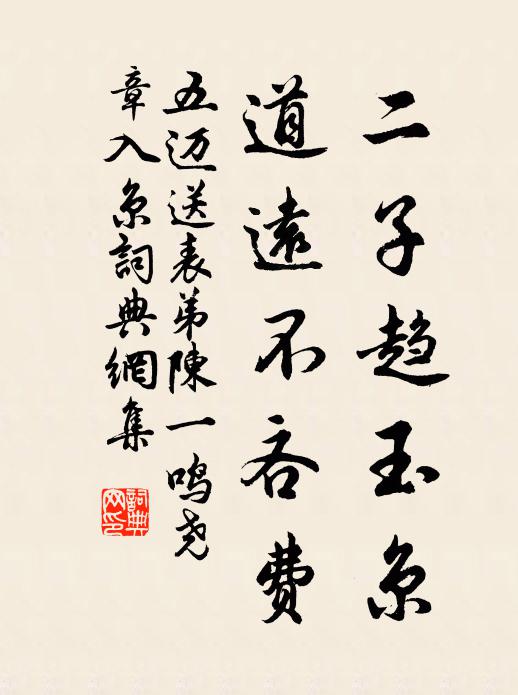 二子趋玉京
道遠不吝费
五迈送表弟陳一鸣尧
章入京詞典網集
詞典网印